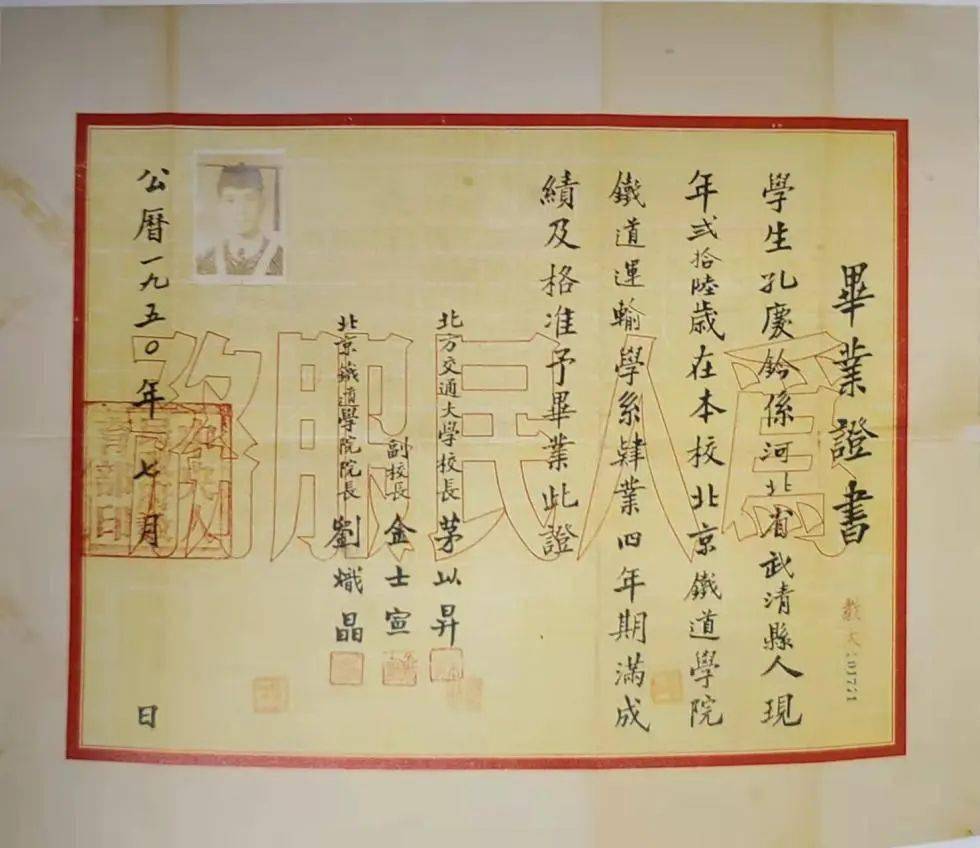 畢業證書
學生孔慶鈐係河北省武清縣人現
年弍拾陸歲在本校北京鐵道學院
鐵道運輸學系肄業四年期滿成
績及格准予畢業此證
北方交通大學校長 茅以昇
副校長 金士宣
北京鐵道學院院長 劉熾晶
公曆一九五〇年七月 日
為人民服務